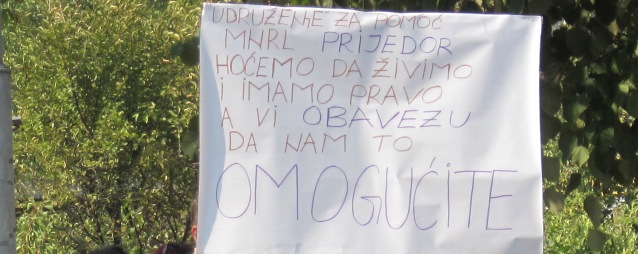 UDRUŽENJE ZA POMOĆ
MNRL PRIJEDOR
HOĆEMO DA ŽIVIMO
I IMAMO PRAVO
A VI OBAVEZU
DA NAM TO
OMOGUĆITE